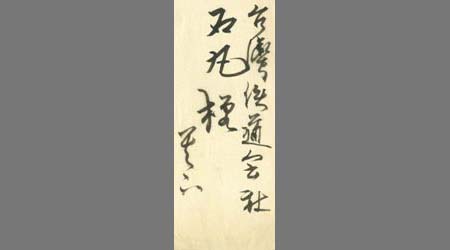 台灣鉄道会社
石丸様